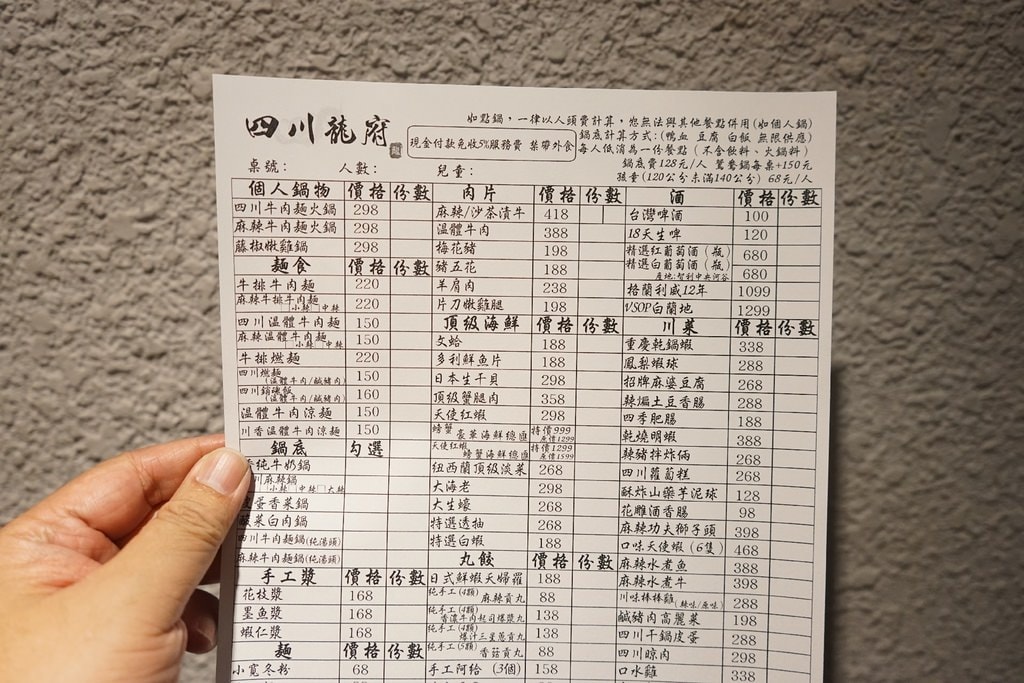 四川龍府
如點鍋，一律以人頭費計算，恕無法與其他餐點併用(如個人鍋)
現金付款免收5%服務費 禁帶外食
鍋底計算方式：(鴨血 豆腐 白飯 無限供應)
每人低消為一份餐點 (不含飲料、火鍋料)
鍋底費128元/人 鴛鴦鍋每桌+150元
孩童(120公分未滿140公分) 68元/人
桌號： 人數： 兒童：
個人鍋物 價格 份數
四川牛肉麵火鍋 298
麻辣牛肉麵火鍋 298
藤椒嫩雞鍋 298
麵食 價格 份數
牛排牛肉麵 220
麻辣牛排牛肉麵 小辣 中辣 220
四川溫體牛肉麵 150
麻辣溫體牛肉麵 小辣 中辣 150
牛排燃麵 220
四川燃麵 (溫體牛肉/鹹豬肉) 150
四川 飯 (溫體牛肉/鹹豬肉) 160
溫體牛肉涼麵 150
川香溫體牛肉涼麵 150
鍋底 勾選
純牛奶鍋
川麻辣鍋 小辣 中辣 大辣
蛋香菜鍋
酸菜白肉鍋
四川牛肉麵鍋(純湯頭)
麻辣牛肉麵鍋(純湯頭)
手工漿 價格 份數
花枝漿 168
墨魚漿 168
蝦仁漿 168
麵 價格 份數
小寬冬粉 68
肉片 價格 份數
麻辣/沙茶漬牛 418
溫體牛肉 388
梅花豬 198
豬五花 188
羊肩肉 238
片刀嫩雞腿 198
頂級海鮮 價格 份數
文蛤 188
多利鮮魚片 188
日本生干貝 298
頂級蟹腿肉 358
天使紅蝦 298
螃蟹 豪華海鮮總匯 特價999 原價1299
天使紅蝦 螃蟹海鮮總匯 特價1299 原價1599
紐西蘭頂級淡菜 268
大海老 298
大生蠔 268
特選透抽 268
特選白蝦 188
丸餃 價格 份數
日式鮮蝦天婦羅 188
純手工(4顆) 麻辣貢丸 88
純手工(4顆) 香濃牛肉起司爆漿丸 138
純手工(4顆) 爆汁三星蔥貢丸 138
純手工(5顆) 香菇貢丸 88
手工阿給 (3個) 158
酒 價格 份數
台灣啤酒 100
18天生啤 120
精選紅葡萄酒 (瓶) 680
精選白葡萄酒 (瓶) 產地:智利中央河谷 680
格蘭利威12年 1099
VSOP白蘭地 1299
川菜 價格 份數
重慶乾鍋蝦 338
鳳梨蝦球 288
招牌麻婆豆腐 268
辣煸土豆香腸 288
四季肥腸 188
乾燒明蝦 388
辣豬拌炸俩 268
四川蘿蔔糕 268
酥炸山藥芋泥球 128
花雕酒香腸 98
麻辣功夫獅子頭 398
口味天使蝦 (6隻) 468
麻辣水煮魚 388
麻辣水煮牛 398
川味棒棒雞 (辣味/原味) 288
鹹豬肉高麗菜 198
四川干鍋皮蛋 288
四川晾肉 298
口水雞 338